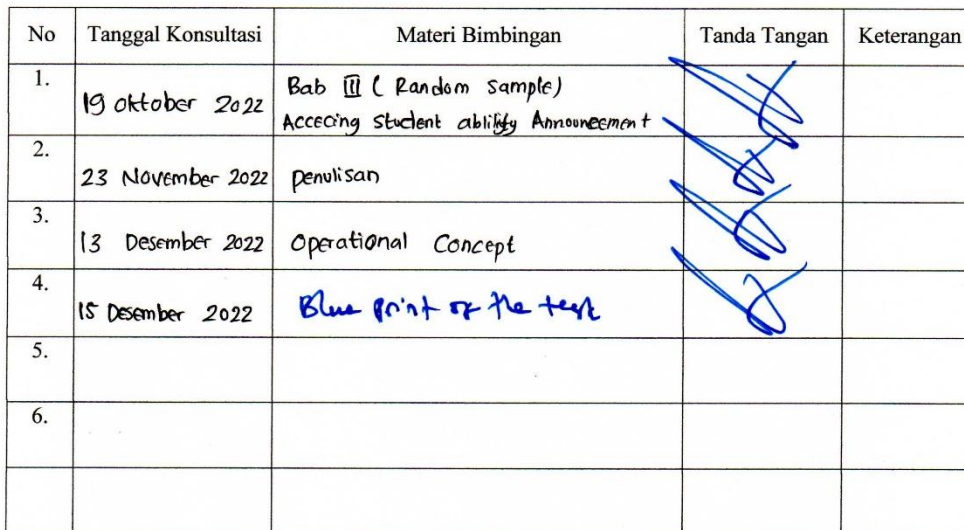 No Tanggal Konsultasi Materi Bimbingan Tanda Tangan Keterangan
1. 19 Oktober 2022 Bab III ( Random Sample)
Accecing student ablility Announcement
2. 23 November 2022 penulisan
3. 13 Desember 2022 Operational Concept
4. 15 Desember 2022 Blue print of the test
5.
6.